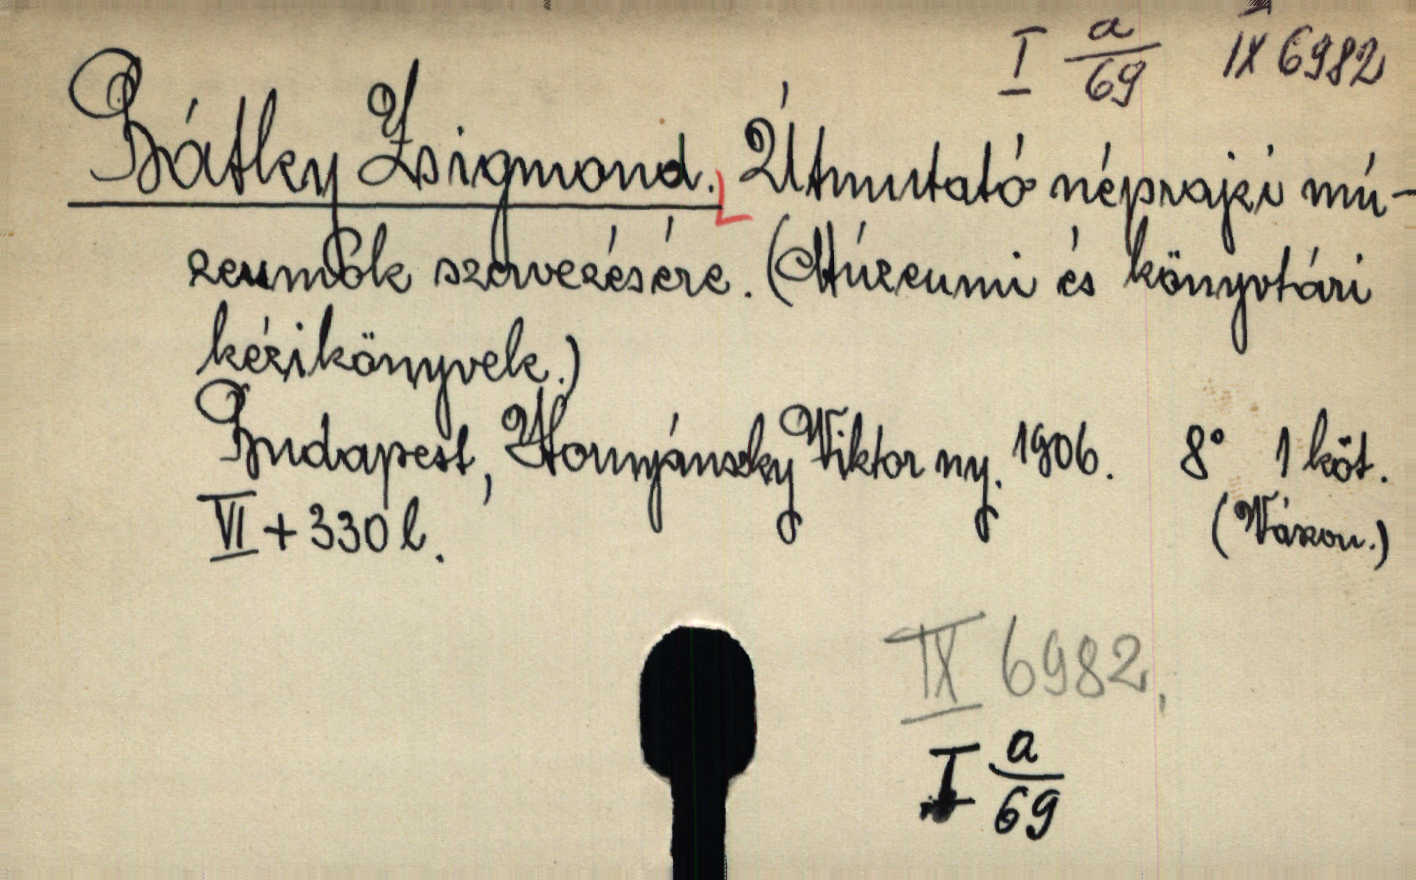 I a/69 IX 6982
Bátky Zsigmond. Útmutató néprajzi mú-
zeumok szervezésére. (Múzeumi és könyvtári
kézikönyvek.)
Budapest, Hornyánszky Viktor ny. 1906. 8° 1 köt.
VI + 330 l. (Vászon.)
IX 6982.
I a/69